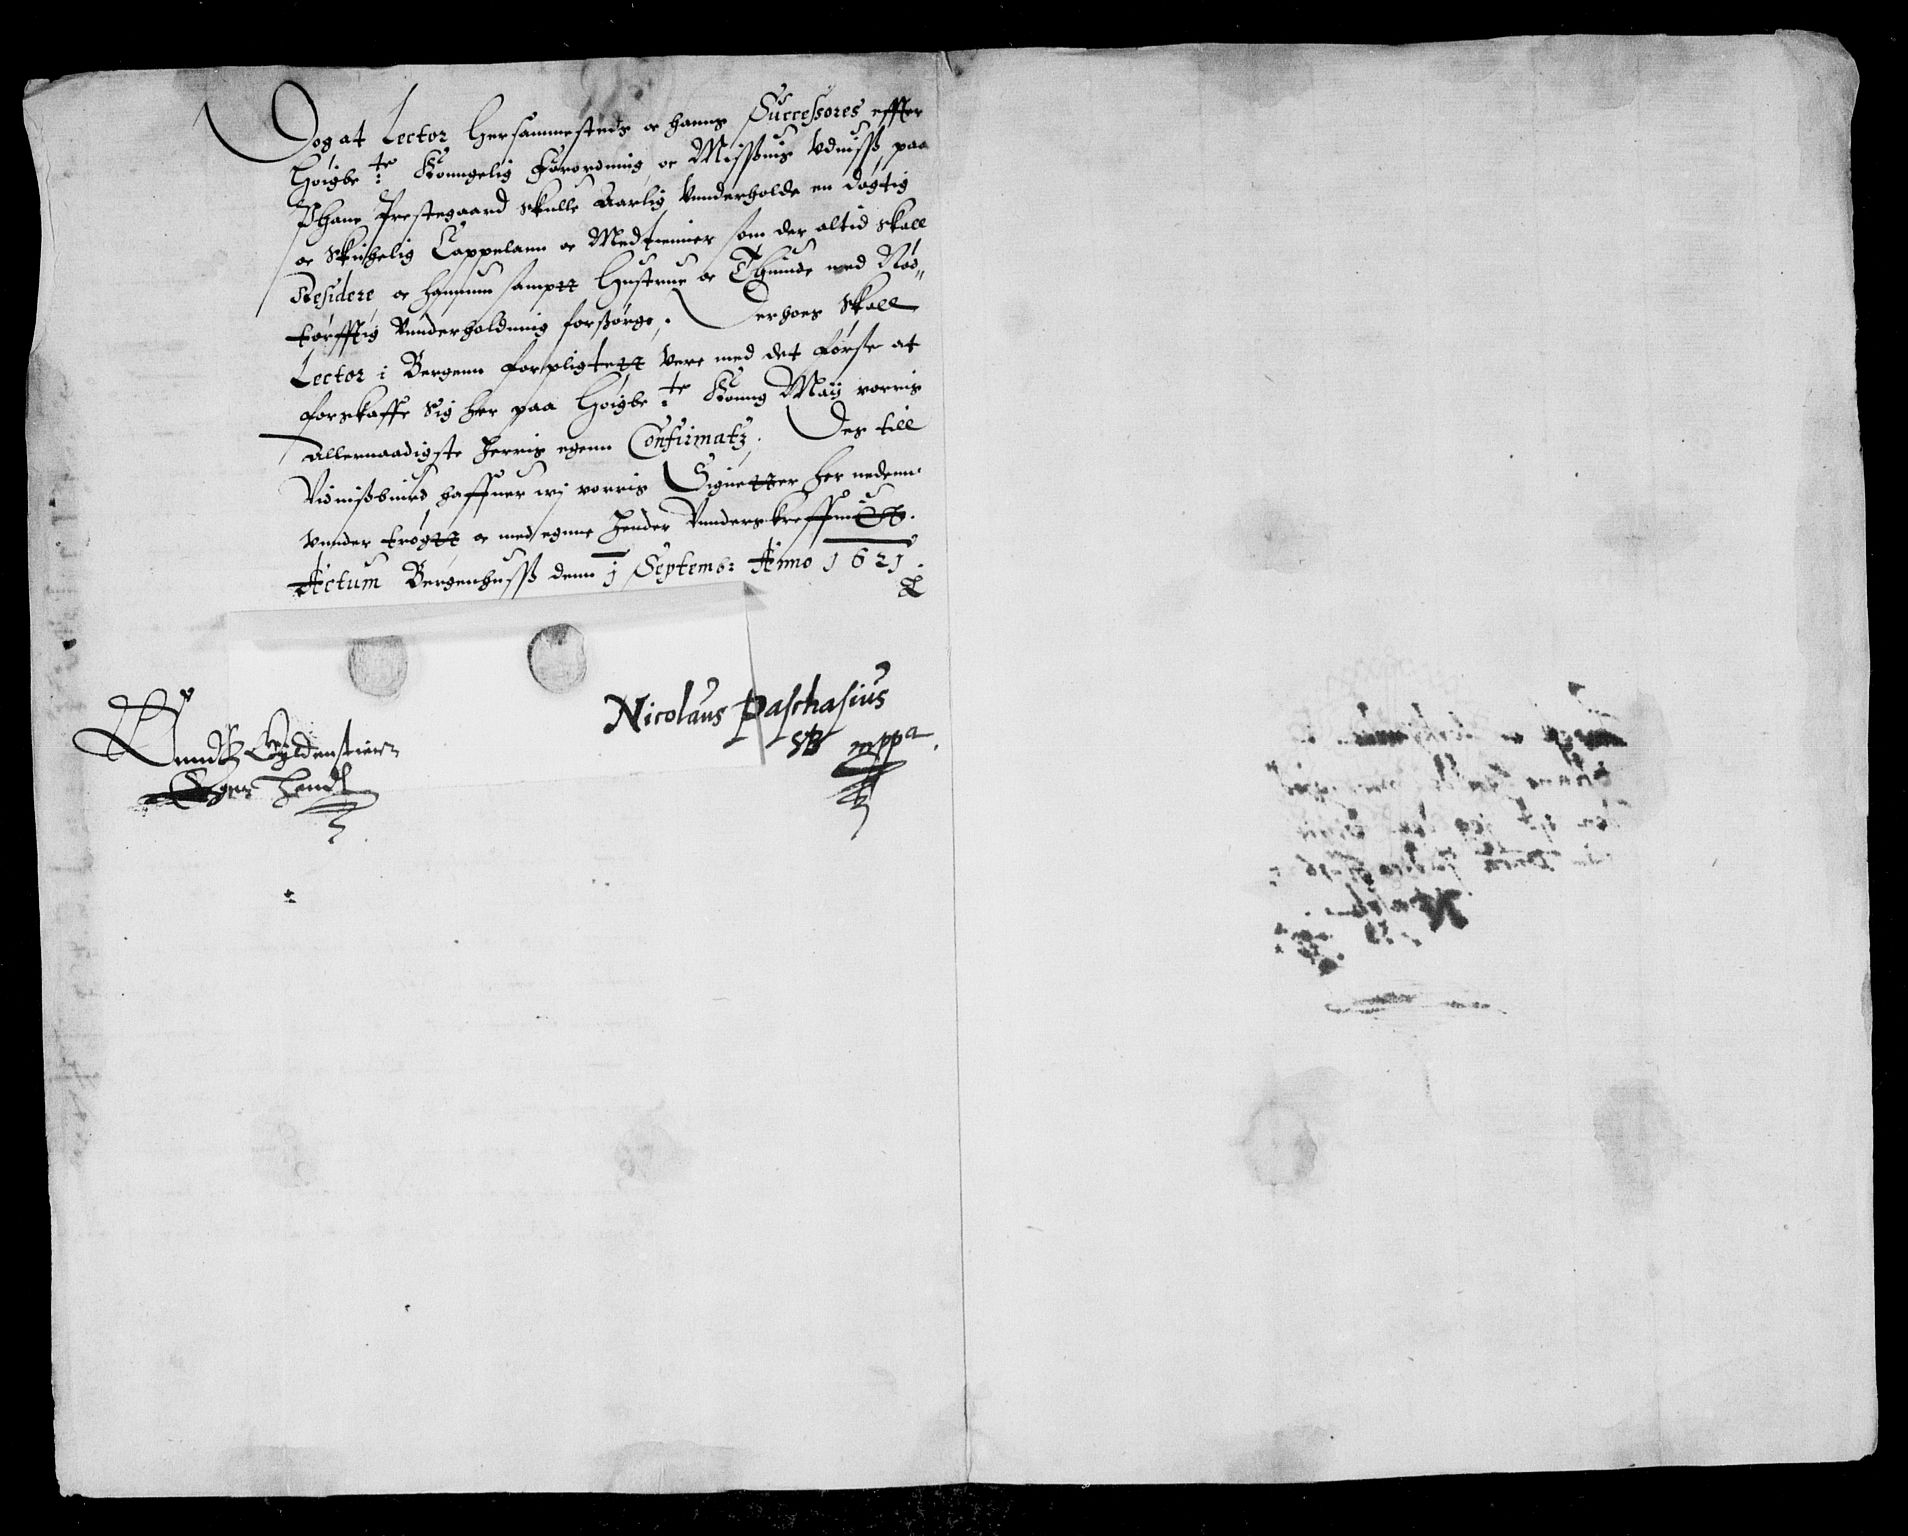 Dog at Lector hersammesteds oc hanns Successores effter
Høigbe:te Konngelig Forordning, oc Missivis Vdvisß, paa
Phane Prestegaard skulle Aarlig Vnnderholde en døgtig
oc skichelig Cappelann oc Medtienner som der altid skall
Residere oc hannum sampt Hustrue oc Thiunde med Nød„
tørfftig Vnnderholdning forßørge, Derhoes skall
Lector i Bergenn forpligtett vere med det første at
forskaffe sig her paa Høigbe:te Konng May vorris
allernaadigste herris egenn Confirmatz, Des till
Vidnißbiurd haffuer wj vorris Signetter her nedenn
vnnder trøgtt oc med egnne hender Vnnderskreffuitt.
Actum Bergenhusß denn j Septemb: Anno 1621.
Knudtz Gyldenstiern
Egen Hendt
Nicolaus Paschasius
SB mppa.